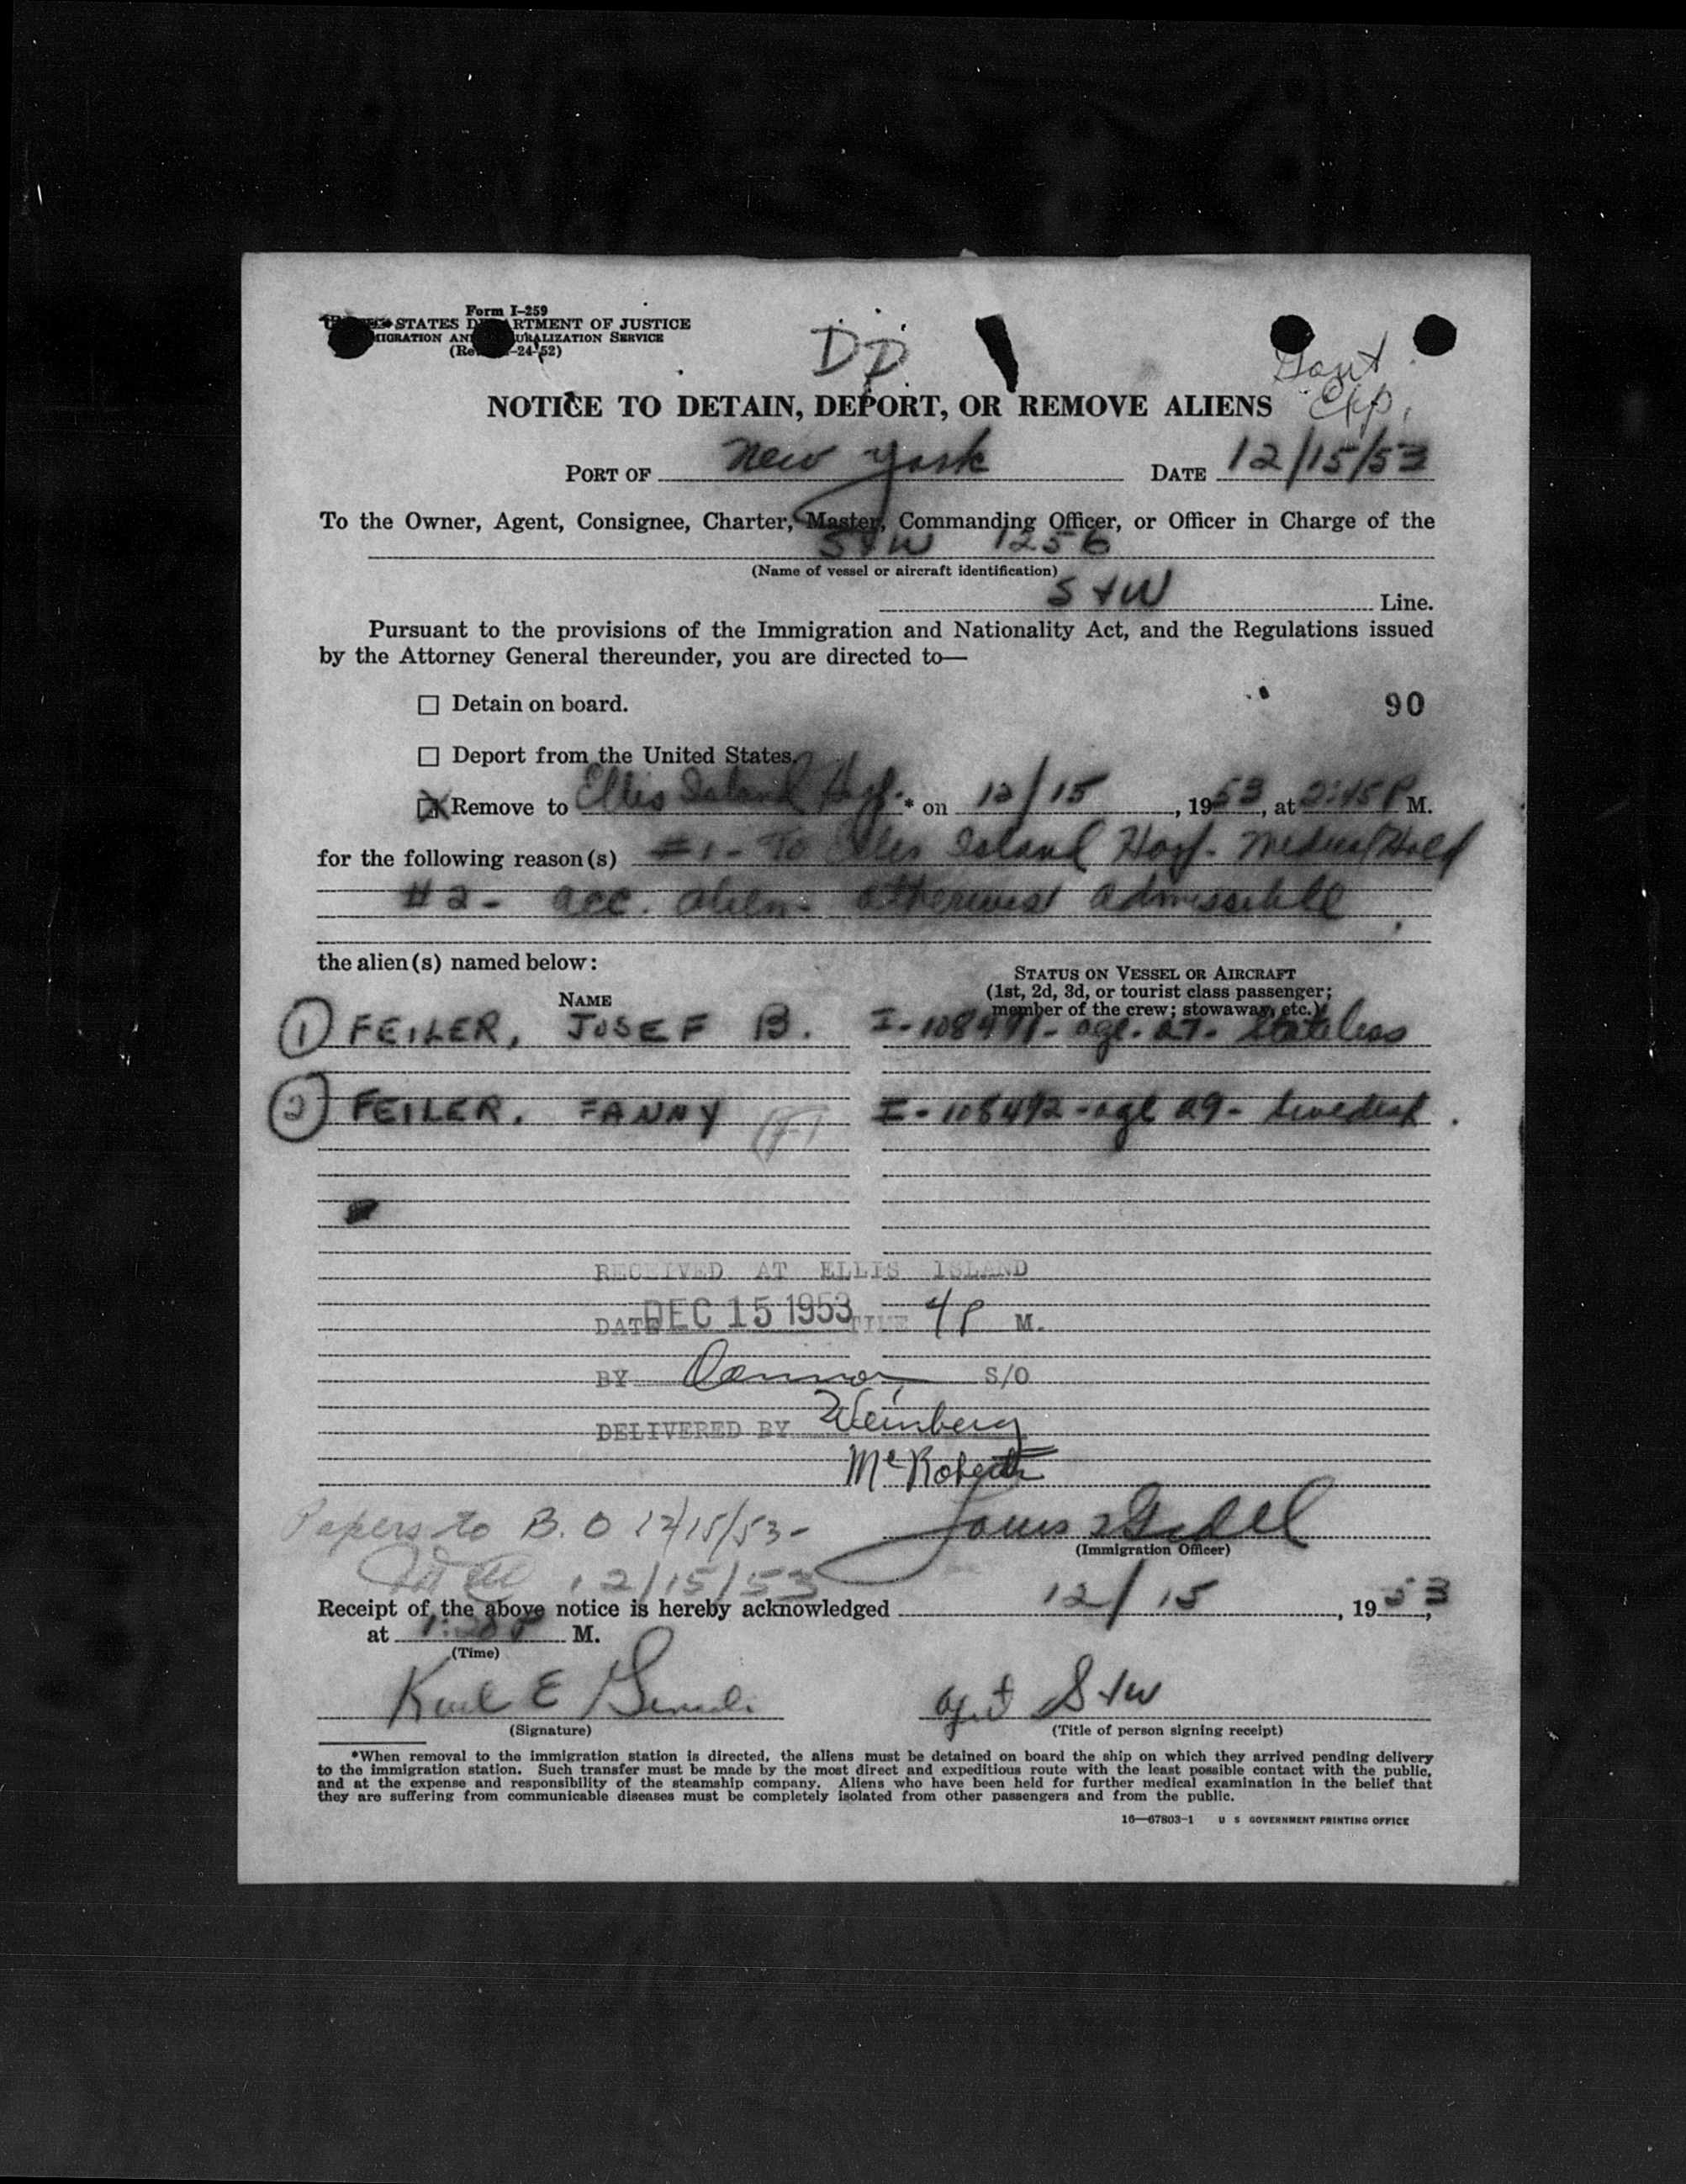 Form I-259
STATES DEPARTMENT OF JUSTICE
IMMIGRATION AND NATURALIZATION SERVICE
(Rev. -24-52)
DP
Govt
Exp.
NOTICE TO DETAIN, DEPORT, OR REMOVE ALIENS
PORT OF New York DATE 12/15/53
To the Owner, Agent, Consignee, Charter, Master, Commanding Officer, or Officer in Charge of the
S+W 1256
(Name of vessel or aircraft identification)
S+W Line.
Pursuant to the provisions of the Immigration and Nationality Act, and the Regulations issued
by the Attorney General thereunder, you are directed to—
☐ Detain on board. 90
☐ Deport from the United States.
☒ Remove to Ellis Island Hosp.* on 12/15, 1953, at 2:45 P M.
for the following reason(s) #1- To Ellis Island Hosp. Medical Hold
#2- acc. alien- otherwise admissible
the alien(s) named below:
STATUS ON VESSEL OR AIRCRAFT
NAME (1st, 2d, 3d, or tourist class passenger;
member of the crew; stowaway, etc.)
① FEILER, JOSEF B. I-108491- age. 27- Stateless
② FEILER, FANNY (F) I-108492-age 29- Swedish
RECEIVED AT ELLIS ISLAND
DATE DEC 15 1953 TIME 4 P M.
BY Connor S/O
DELIVERED BY Weinberg
McRoberts
Papers to B.O 12/15/53-
Louis
(Immigration Officer)
12/15/53
Receipt of the above notice is hereby acknowledged 12/15, 1953,
at 1:20 P M.
(Time)
Karl E Agt S+W
(Signature) (Title of person signing receipt)
*When removal to the immigration station is directed, the aliens must be detained on board the ship on which they arrived pending delivery
to the immigration station. Such transfer must be made by the most direct and expeditious route with the least possible contact with the public,
and at the expense and responsibility of the steamship company. Aliens who have been held for further medical examination in the belief that
they are suffering from communicable diseases must be completely isolated from other passengers and from the public.
16—67803-1 U S GOVERNMENT PRINTING OFFICE